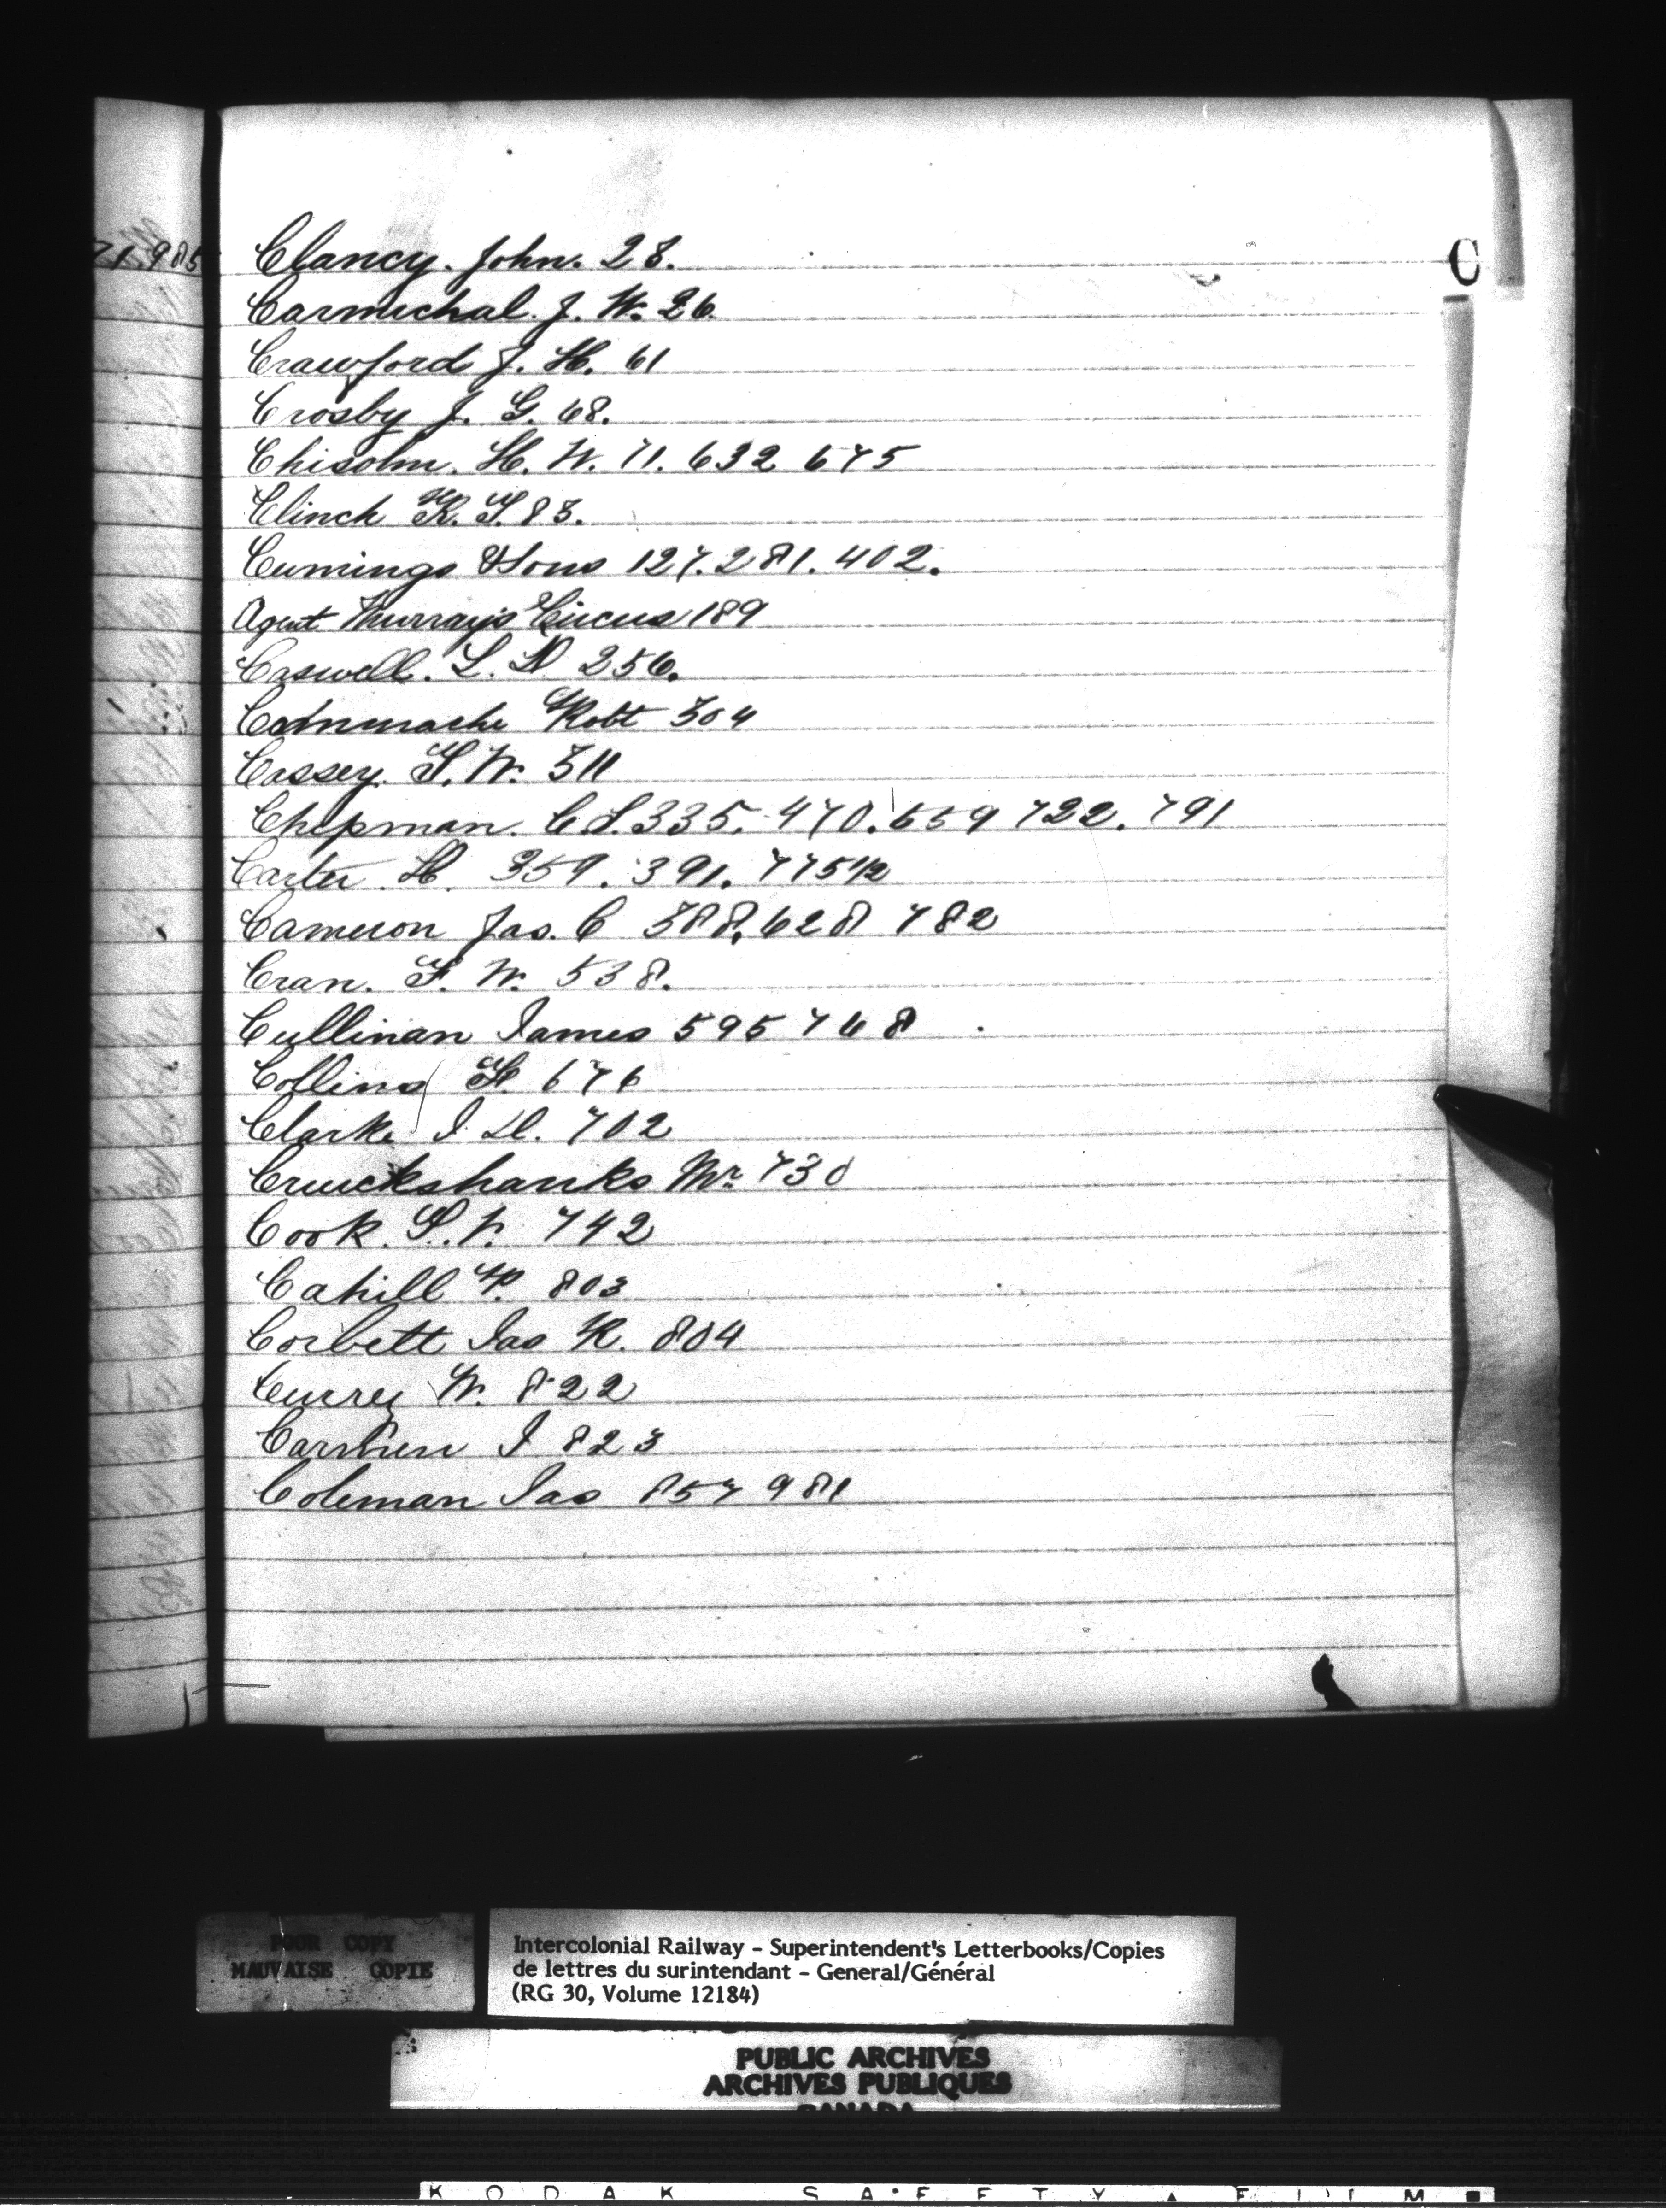 71.985
C
Clancy. John. 28.
Carmichal. J. W. 26.
Crawford J. H. 61
Crosby J. G. 68.
Chisolm. H. W. 71. 632 675
Clinch R. T. 83.
Cumings & Sons 127. 281. 402.
Agent Murray's Circus 189
Caswell. L. D 256.
Robt 304
Cassey. T. W. 311
Chepman. C S. 335. 470. 659 722. 791
Carter. H. 359. 391. 775 1/2
Cameron Jas. C 388. 628 782
Cran. F. W. 538.
Cullinan James 595 768
Collins F. 676
Clarke I D. 702
Cruickshanks Mr. 730
Cook. S. 742
Cahill P. 803
Corbett Jas R. 804
Currey W. 822
I 823
Coleman Jas 857 981
POOR COPY
MAUVAISE COPIE
Intercolonial Railway - Superintendent's Letterbooks/Copies
de lettres du surintendant - General/Général
(RG 30, Volume 12184)
PUBLIC ARCHIVES
ARCHIVES PUBLIQUES
CANADA
KODAK SAFETY FILM